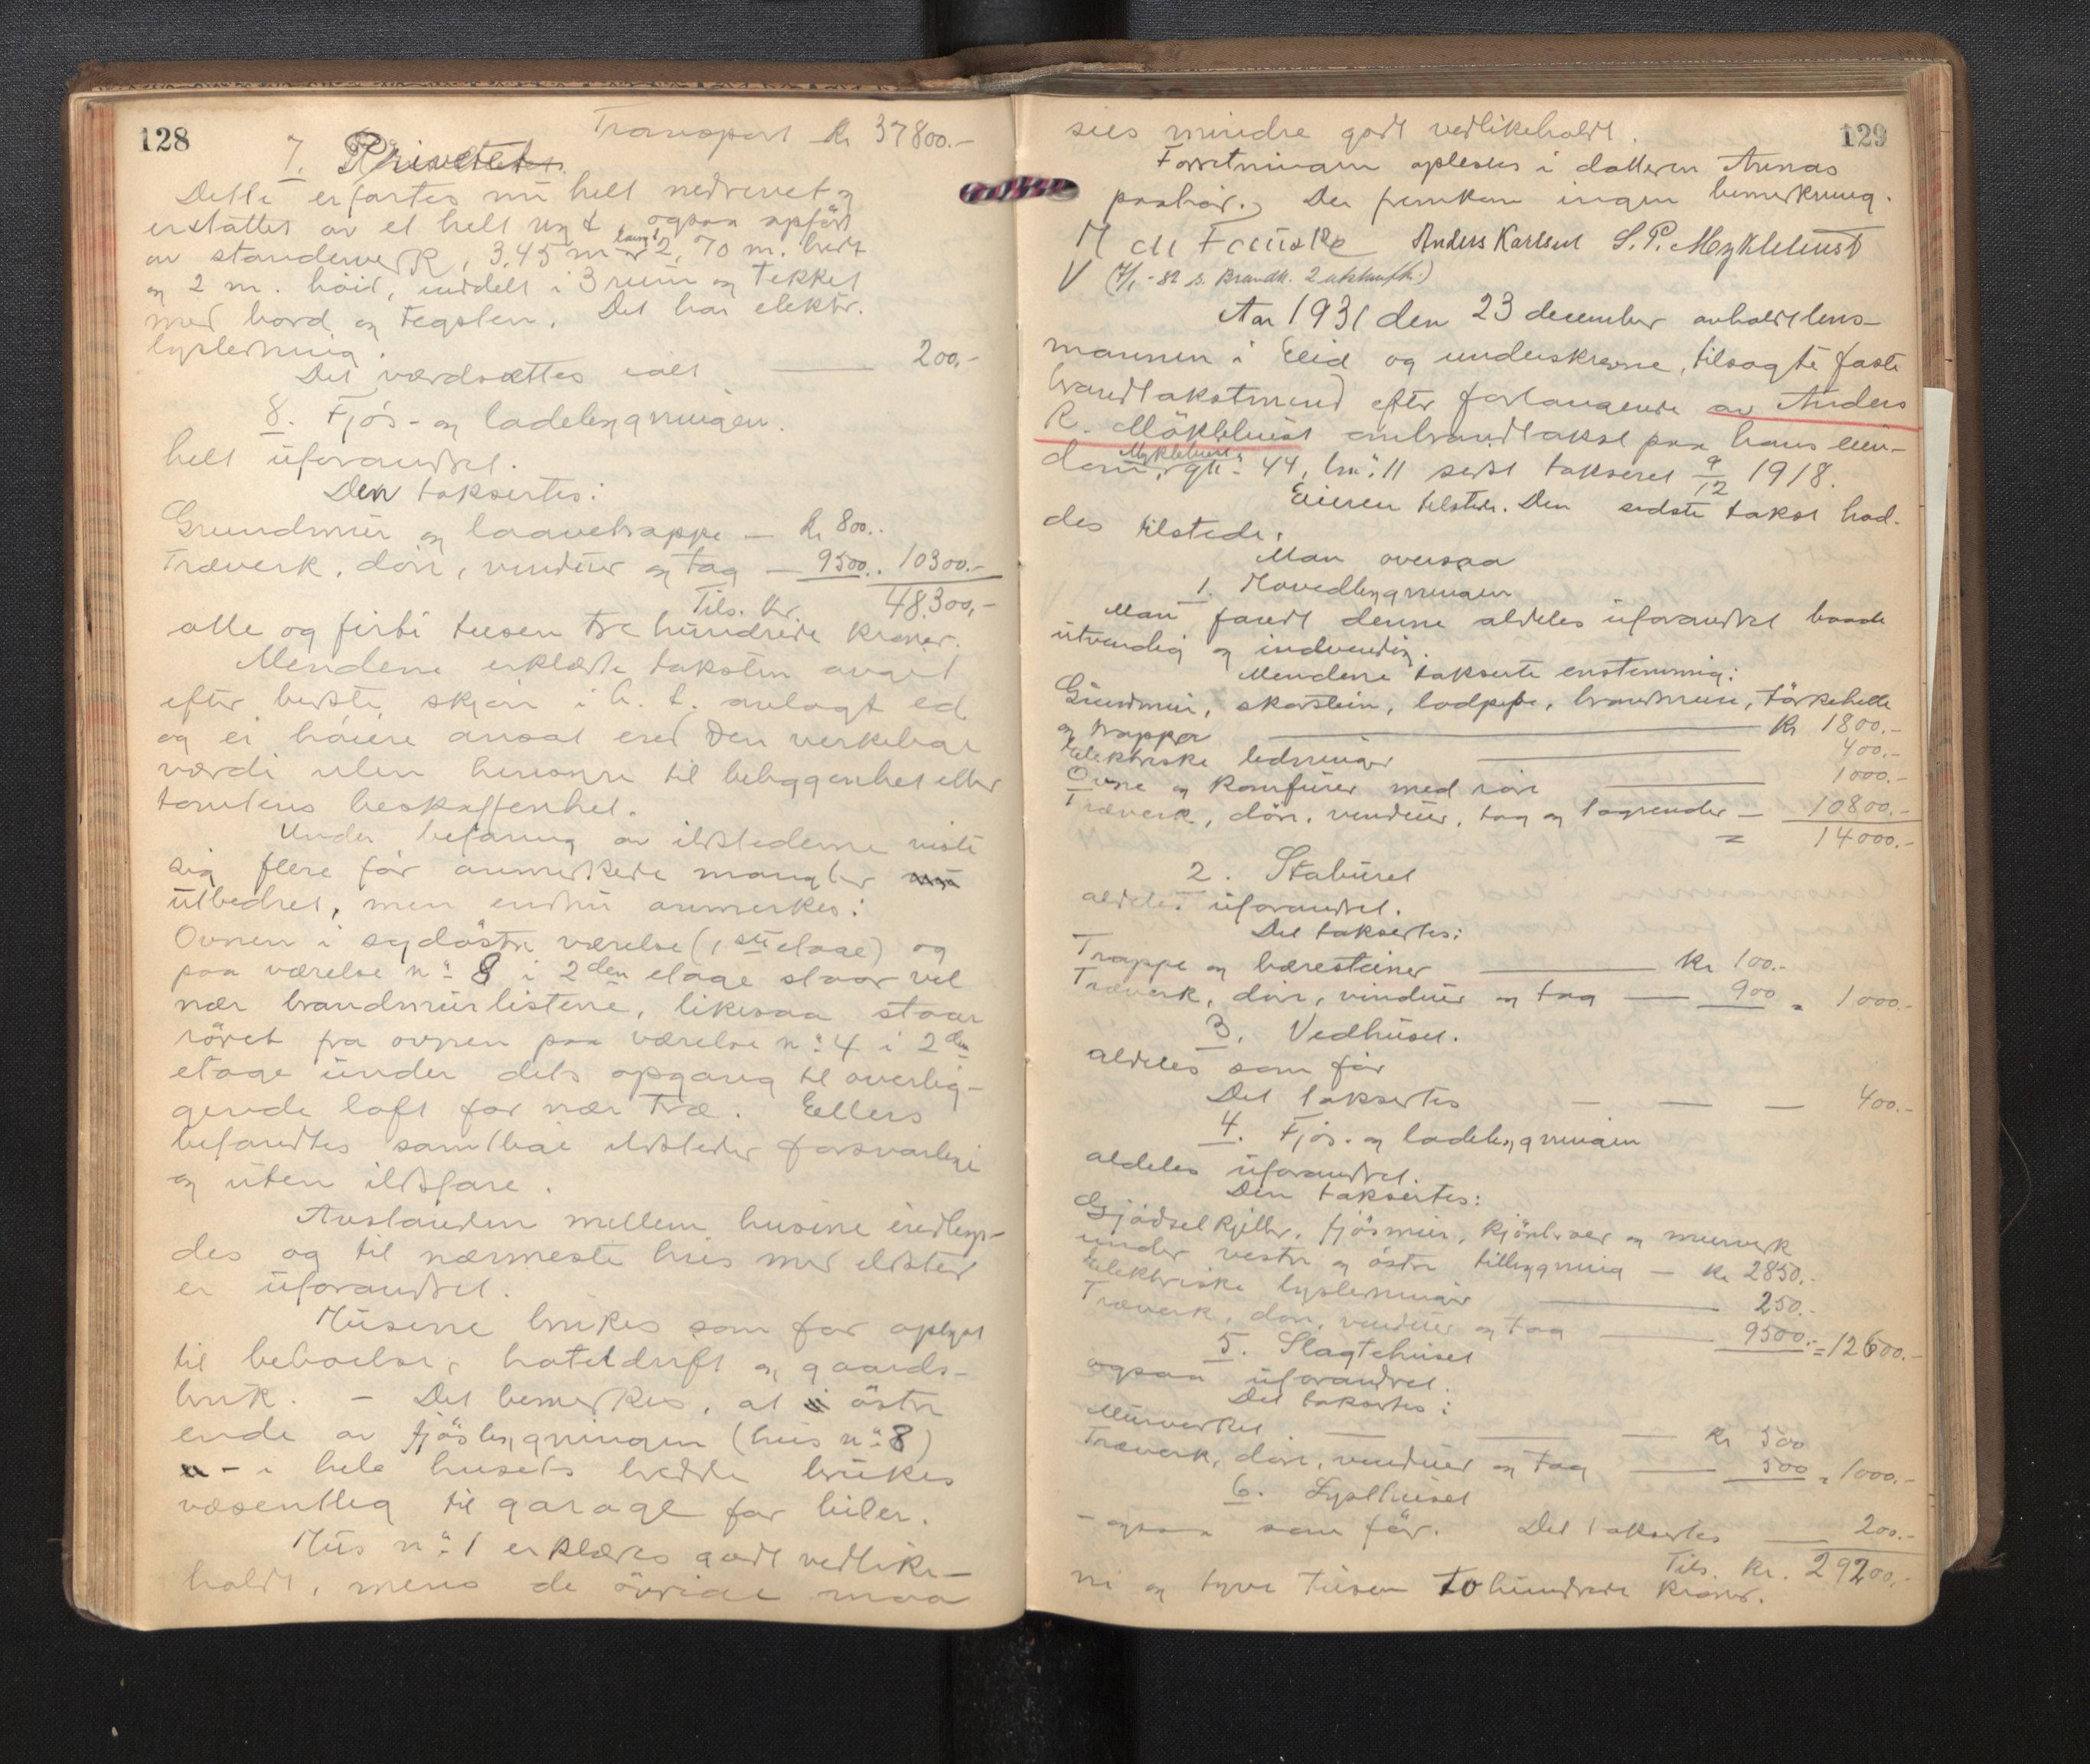 128
Transport Kr 37800.-
7. Privetet.
Dette erfartes nu helt nedrevet og
erstattet av et helt nyt, ogsaa opført
av stenderverk, 3,45 m langt 2,70 m. bredt
og 2 m. høit, inddelt i 3 rum og tekket
med bord og tegsten. Det har elektr.
lysledning.
Det værdsættes ialt — 200,-
8. Fjös- og ladebygningen.
helt uforandret.
Den taksertes:
Grundmur og laavetrappe — Kr 800.-
Træverk, dörr, vinduer og tag — 9500.- 10300.-
Tils. Kr. 48300,-
otte og firti tusen tre hundrede kroner.
Mendene erklærte taksten avgit
efter beste skjön i h. t. avlagt ed
og ei höiere ansat end den virkelige
værdi uten hensyn til beliggenhet eller
tomtens beskaffenhet.
Under befaring av ildstederne viste
sig flere för anmerkede mangler
utbedret, men endnu anmerkes:
Ovnen i sydöstre værelse (1ste etage) og
paa værelse no 8 i 2den etage staar vel
nær brandmurlistene, likesaa staar
röret fra ovnen paa værelse no 4 i 2den
etage under dets opgang til overlig-
gende loft for nær træ. Ellers
befandtes samtlige ildsteder forsvarlige
og uten ildsfare.
Avstanden mellem husene indbyr-
des og til nærmeste hus med ildsted
er uforandret.
Husene brukes som för oplyst
til beboelse, hoteldrift og gaards-
bruk. - Det bemerkes, at östre
ende av fjösbygningen (hus no 8)
- i hele husets bredde brukes
væsentlig til garage for biler.
Hus no 1 erklæres godt vedlike-
holdt, mens de övrige maa
129
sies mindre godt vedlikeholdt.
Forretningen oplestes i datteren Annas
paahör. Der fremkom ingen bemerkning.
M du Fauske Anders Karlsen S. P. Myklebust
V (7/1 - 32 s. Brandk. 2 utskrifter.)
Aar 1931 den 23 december avholdt lens-
mannen i Eid og underskrevne, tilsagte faste
brandtakstmend efter forlangende av Anders
R. Mökkebust ombrandtakst paa hans eien-
dom, Myklebust gno 44, bno 11 sidst taksert 9/12 1918.
Eieren tilstede. Den sidste takst had-
des tilstede.
Man overсаa
1. Hovedbygningen
Man fandt denne aldeles uforandret baade
utvendig og indvendig.
Mendene takserte enstemmig:
Grundmur, skorstein, lodpipe, brandmure, törkehelle
og trapper — Kr 1800.-
Elektriske ledninger — 400.-
Ovne og komfurer med rör — 1000.-
Træverk, dörr, vinduer, tag og tagrender — 10800.-
= 14000.-
2. Staburet
aldeles uforandret.
Det taksertes:
Trappe og bæresteiner — Kr 100.-
Træverk, dörr, vinduer og tag — 900 = 1000.-
3. Vedhuset.
aldeles som för
Det taksertes — — — 400.-
4. Fjös- og ladebygningen
aldeles uforandret.
Den taksertes:
Gjödselkjeller, fjösmur, kjörebroer og murverk
under vestre og östre tilbygning — Kr 2850.-
Elektriske lysledninger — 250.-
Træverk, dörr, vinduer og tag — 9500.- = 12600.-
5. Slagtehuset
ogsaa uforandret.
Det taksertes:
Murverket — — — Kr 500
Træverk, dörr, vinduer og tag — 500 = 1000.-
6. Lysthuset
- ogsaa som för. Det taksertes — 200.-
Tils. Kr. 29200.-
ni og tyve tusen to hundrede kroner.